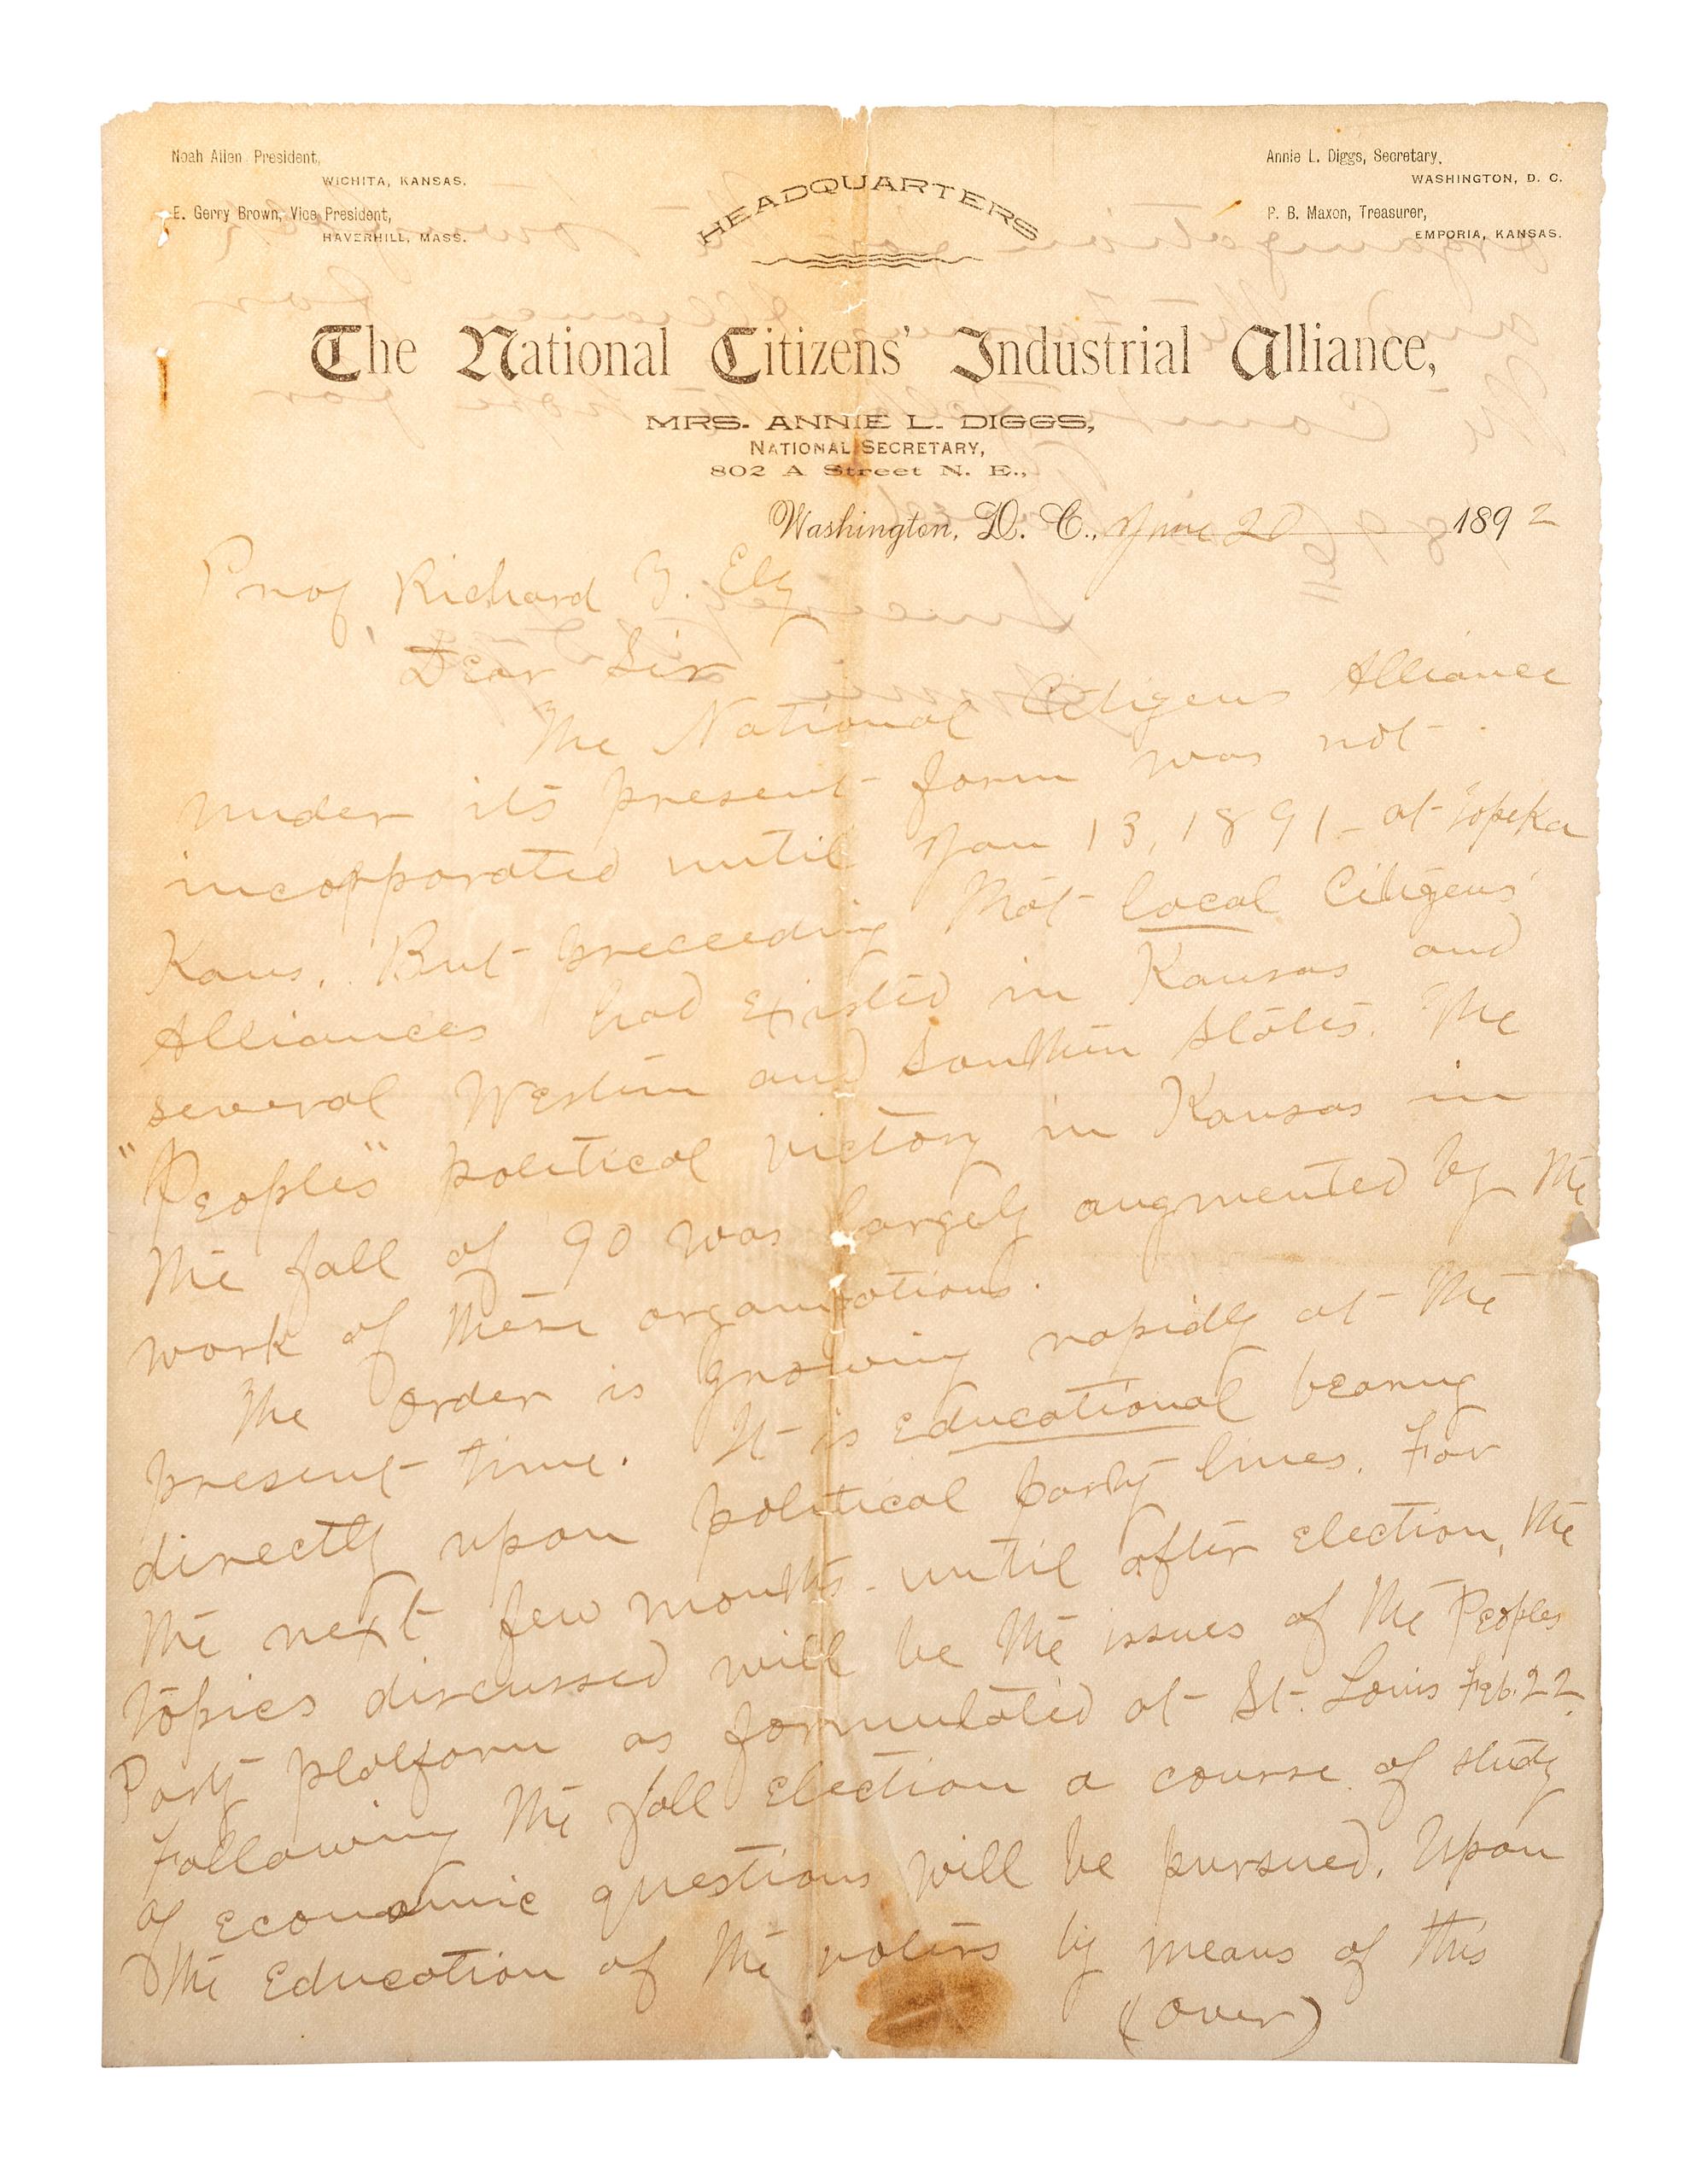 Noah Allen President,
WICHITA, KANSAS.
E. Gerry Brown, Vice President,
HAVERHILL, MASS.
HEADQUARTERS
Annie L. Diggs, Secretary,
WASHINGTON, D. C.
P. B. Maxon, Treasurer,
EMPORIA, KANSAS.
The National Citizens' Industrial Alliance,
MRS. ANNIE L. DIGGS,
NATIONAL SECRETARY,
802 A Street N. E.,
Washington, D. C., June 20 1892
Prof Richard T. Ely
Dear Sir
The National Citizens Alliance
under its present form was not
incorpporated until Jan 13, 1891 - at Topeka
Kans. But preceeding that local Citizens'
Alliances had existed in Kansas and
several Western and Southern States. The
"Peoples" political victory in Kansas in
the fall of 90 was largely augmented by the
work of these organizations.
The order is growing rapidly at the
present time. It is educational bearing
directly upon political party lines. For
the next few months - until after election, the
topics discussed will be the issues of the Peoples
Party platform as formulated at St. Louis Feb. 22.
Following the fall election a course of study
of economic questions will be pursued. Upon
the education of the voters by means of this
(over)